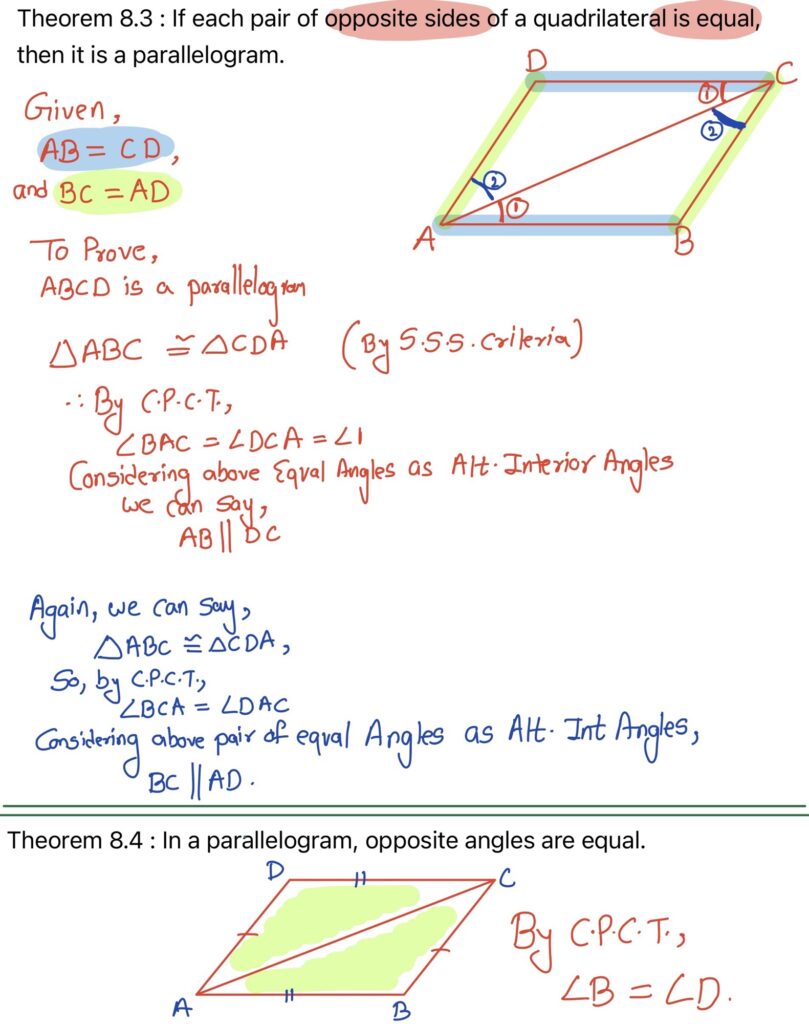 Theorem 8.3 : If each pair of opposite sides of a quadrilateral is equal,
then it is a parallelogram.
Given,
AB = CD,
and BC = AD
D
C
A
B
①
②
②
①
To Prove,
ABCD is a parallelogram
△ABC ≅ △CDA (By S.S.S. Criteria)
∴ By C.P.C.T.,
∠BAC = ∠DCA = ∠1
Considering above Equal Angles as Alt. Interior Angles
we can say,
AB || DC
Again, we can say,
△ABC ≅ △CDA,
So, by C.P.C.T.,
∠BCA = ∠DAC
Considering above pair of equal Angles as Alt. Int Angles,
BC || AD.
Theorem 8.4 : In a parallelogram, opposite angles are equal.
D
C
A
B
By C.P.C.T.,
∠B = ∠D.